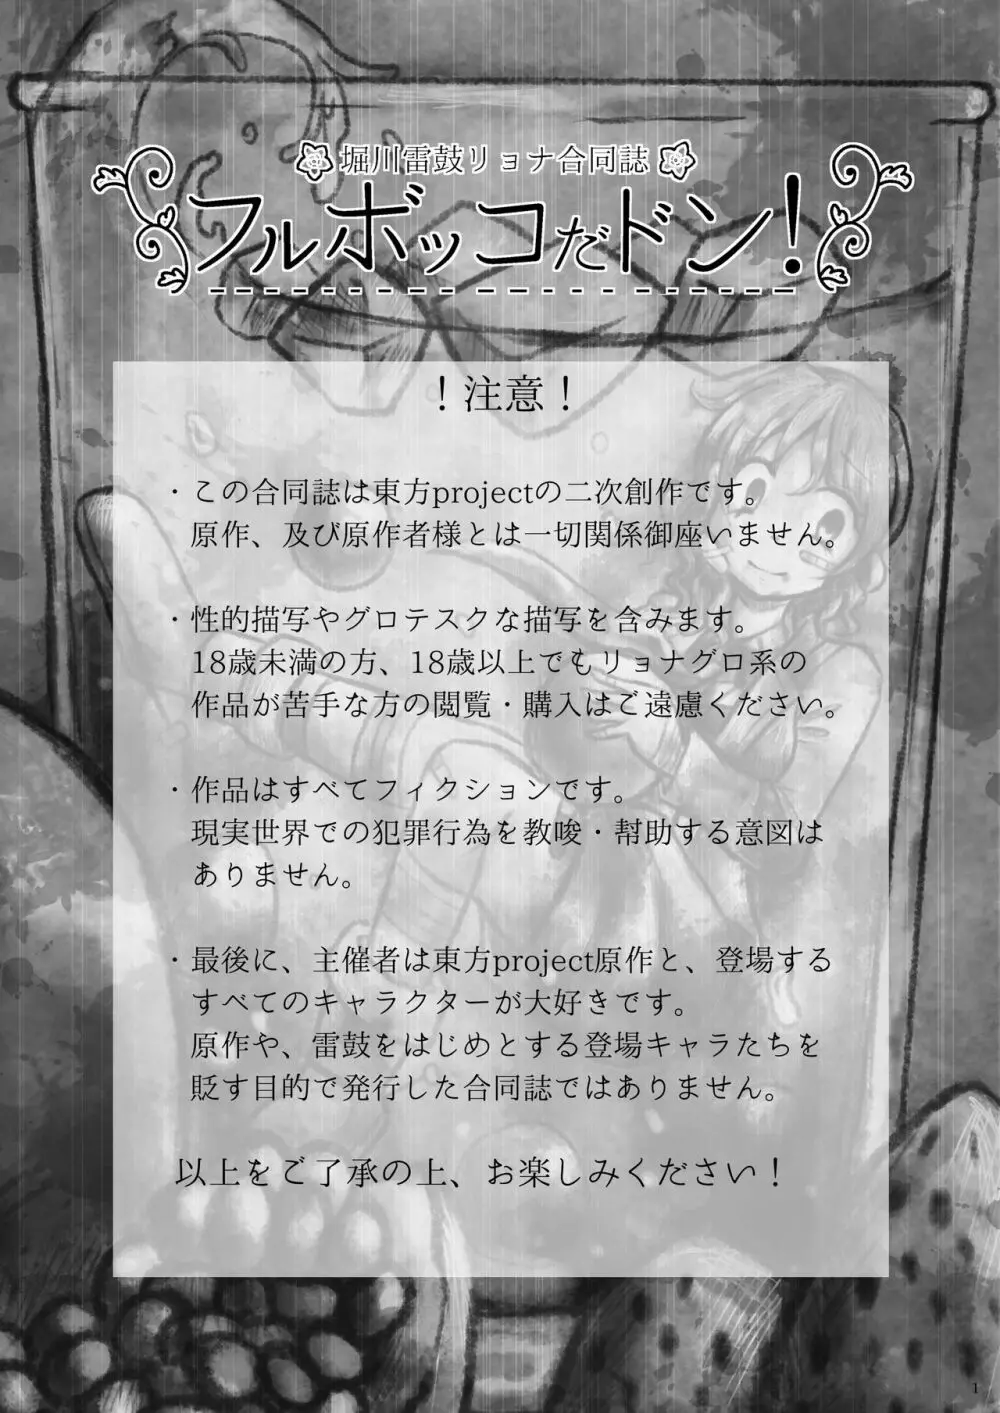 堀川雷鼓リョナ合同誌
フルボッコだドン！
！注意！
・この合同誌は東方projectの二次創作です。
原作、及び原作者様とは一切関係御座いません。
・性的描写やグロテスクな描写を含みます。
18歳未満の方、18歳以上でもリョナグロ系の
作品が苦手な方の閲覧・購入はご遠慮ください。
・作品はすべてフィクションです。
現実世界での犯罪行為を教唆・幇助する意図は
ありません。
・最後に、主催者は東方project原作と、登場する
すべてのキャラクターが大好きです。
原作や、雷鼓をはじめとする登場キャラたちを
貶す目的で発行した合同誌ではありません。
以上をご了承の上、お楽しみください！
1